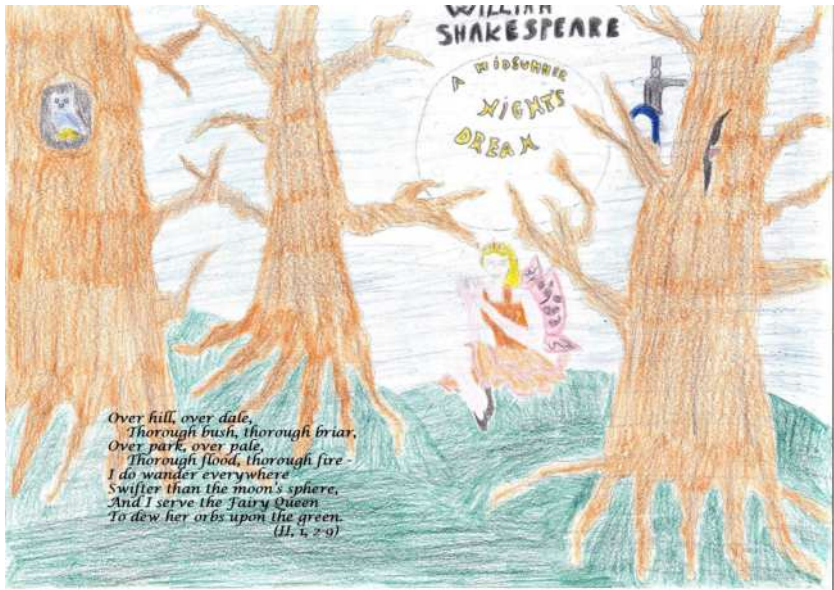 WILLIAM
SHAKESPEARE
A MIDSUMMER
NIGHT'S
DREAM
Over hill, over dale,
Thorough bush, thorough briar,
Over park, over pale,
Thorough flood, thorough fire -
I do wander everywhere
Swifter than the moon's sphere,
And I serve the Fairy Queen
To dew her orbs upon the green.
(II, 1, 2-9)